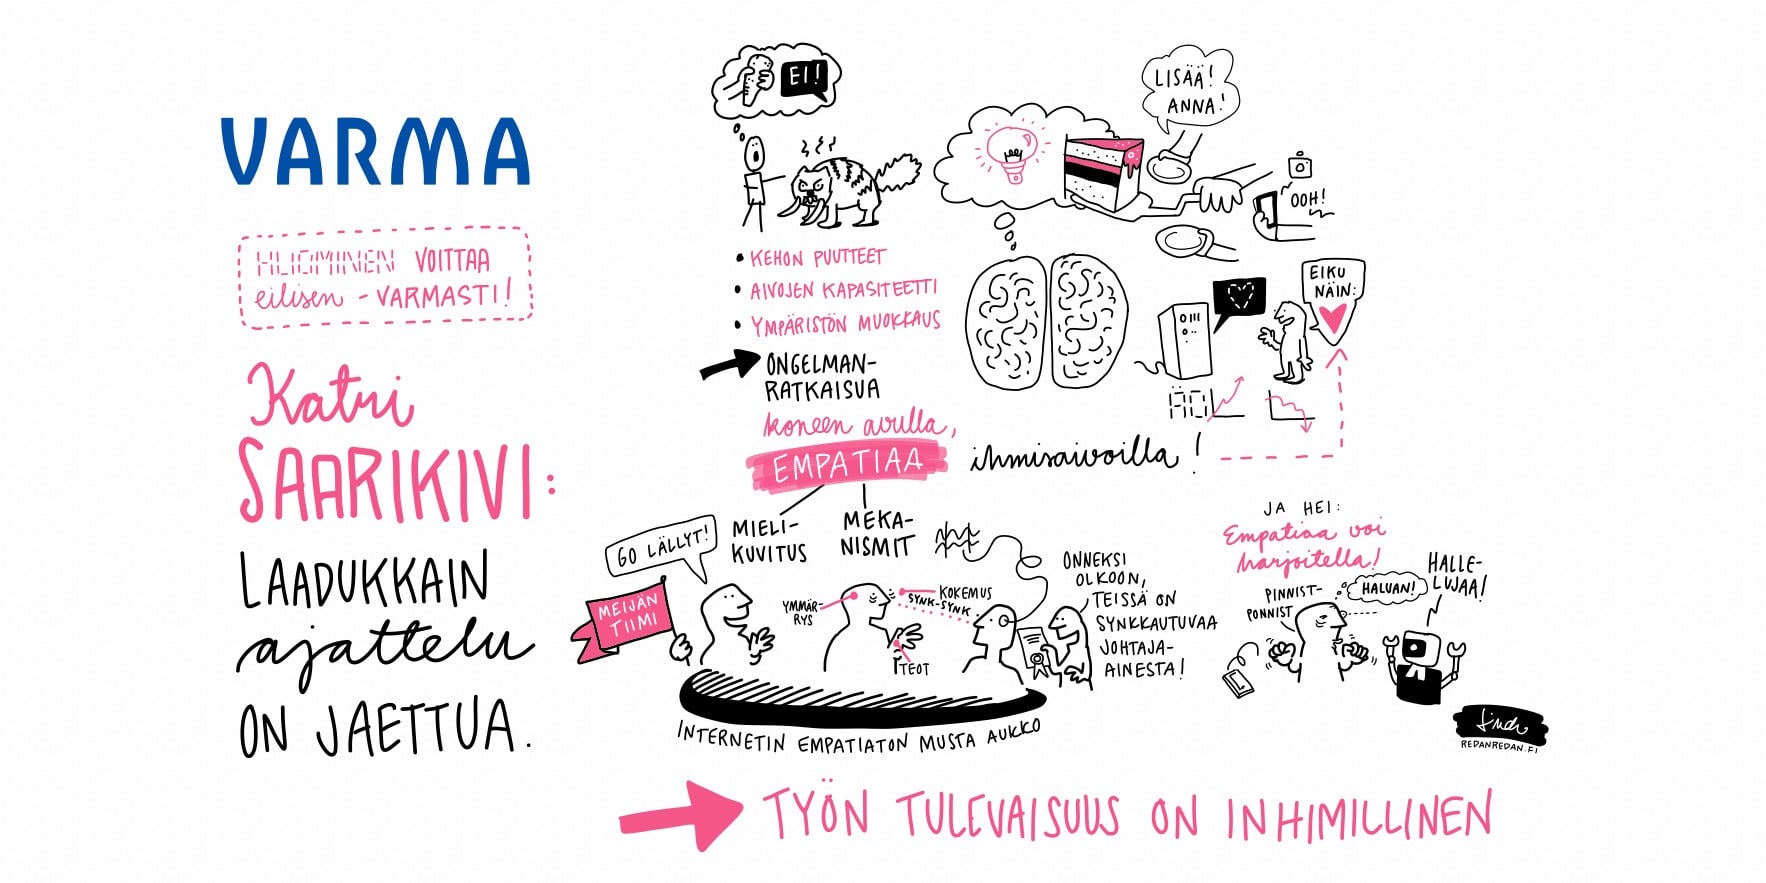 VARMA
HUOMINEN VOITTAA
eilisen - VARMASTI!
Katri
SAARIKIVI:
LAADUKKAIN
ajattelu
ON JAETTUA.
EI!
• KEHON PUUTTEET
• AIVOJEN KAPASITEETTI
• YMPÄRISTÖN MUOKKAUS
ONGELMAN-
RATKAISUA
koneen avulla,
EMPATIAA
ihmisaivoilla!
LISÄÄ!
ANNA!
OOH!
EIKU
NÄIN:
ÄO
MIELI-
KUVITUS
MEKA-
NISMIT
GO LÄLLYT!
MEIJÄN
TIIMI
YMMÄR-
RYS
KOKEMUS
SYNK-SYNK
TEOT
ONNEKSI
OLKOON,
TEISSÄ ON
SYNKKAUTUVAA
JOHTAJA-
AINESTA!
INTERNETIN EMPATIATON MUSTA AUKKO
JA HEI:
Empatiaa voi
harjoitella!
PINNIST-
PONNIST
HALUAN!
HALLE-
LUJAA!
REDANREDAN.FI
TYÖN TULEVAISUUS ON INHIMILLINEN